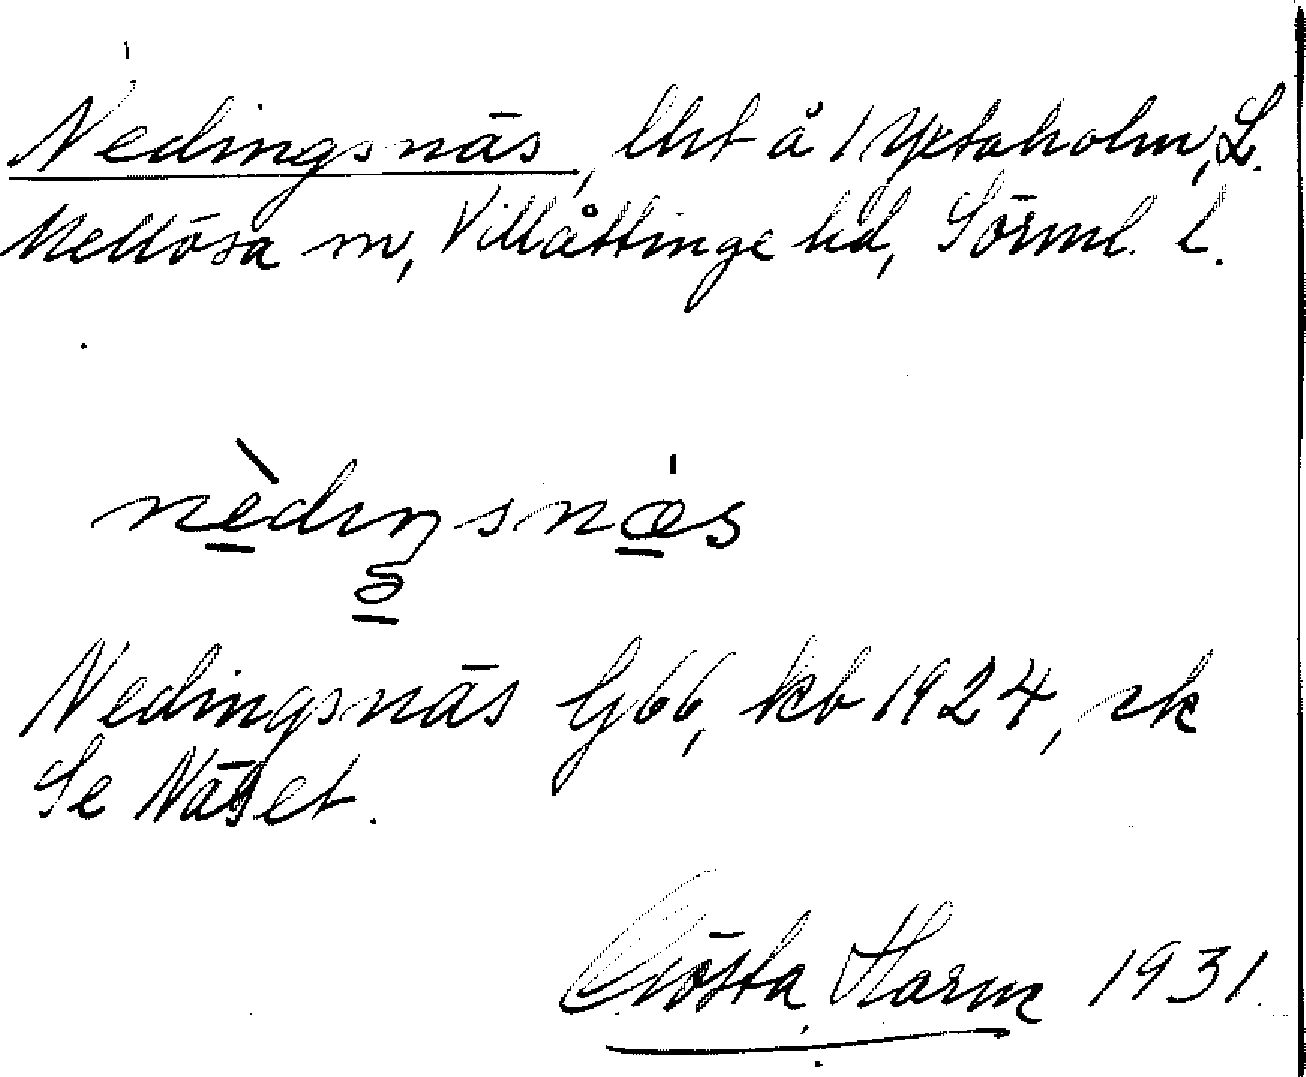 Nedingsnäs, lht å 1 Yxtaholm, L.
Mellösa sn, Villåttinge hd, Sörml. l.
nèdıŋsnæs
g
Nedingsnäs G66, kb 1924, sk
Se Näset.
Gösta Harm 1931.